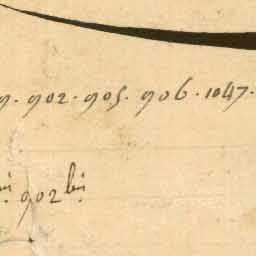 9. 902. 905. 906. 1047.
902 bis